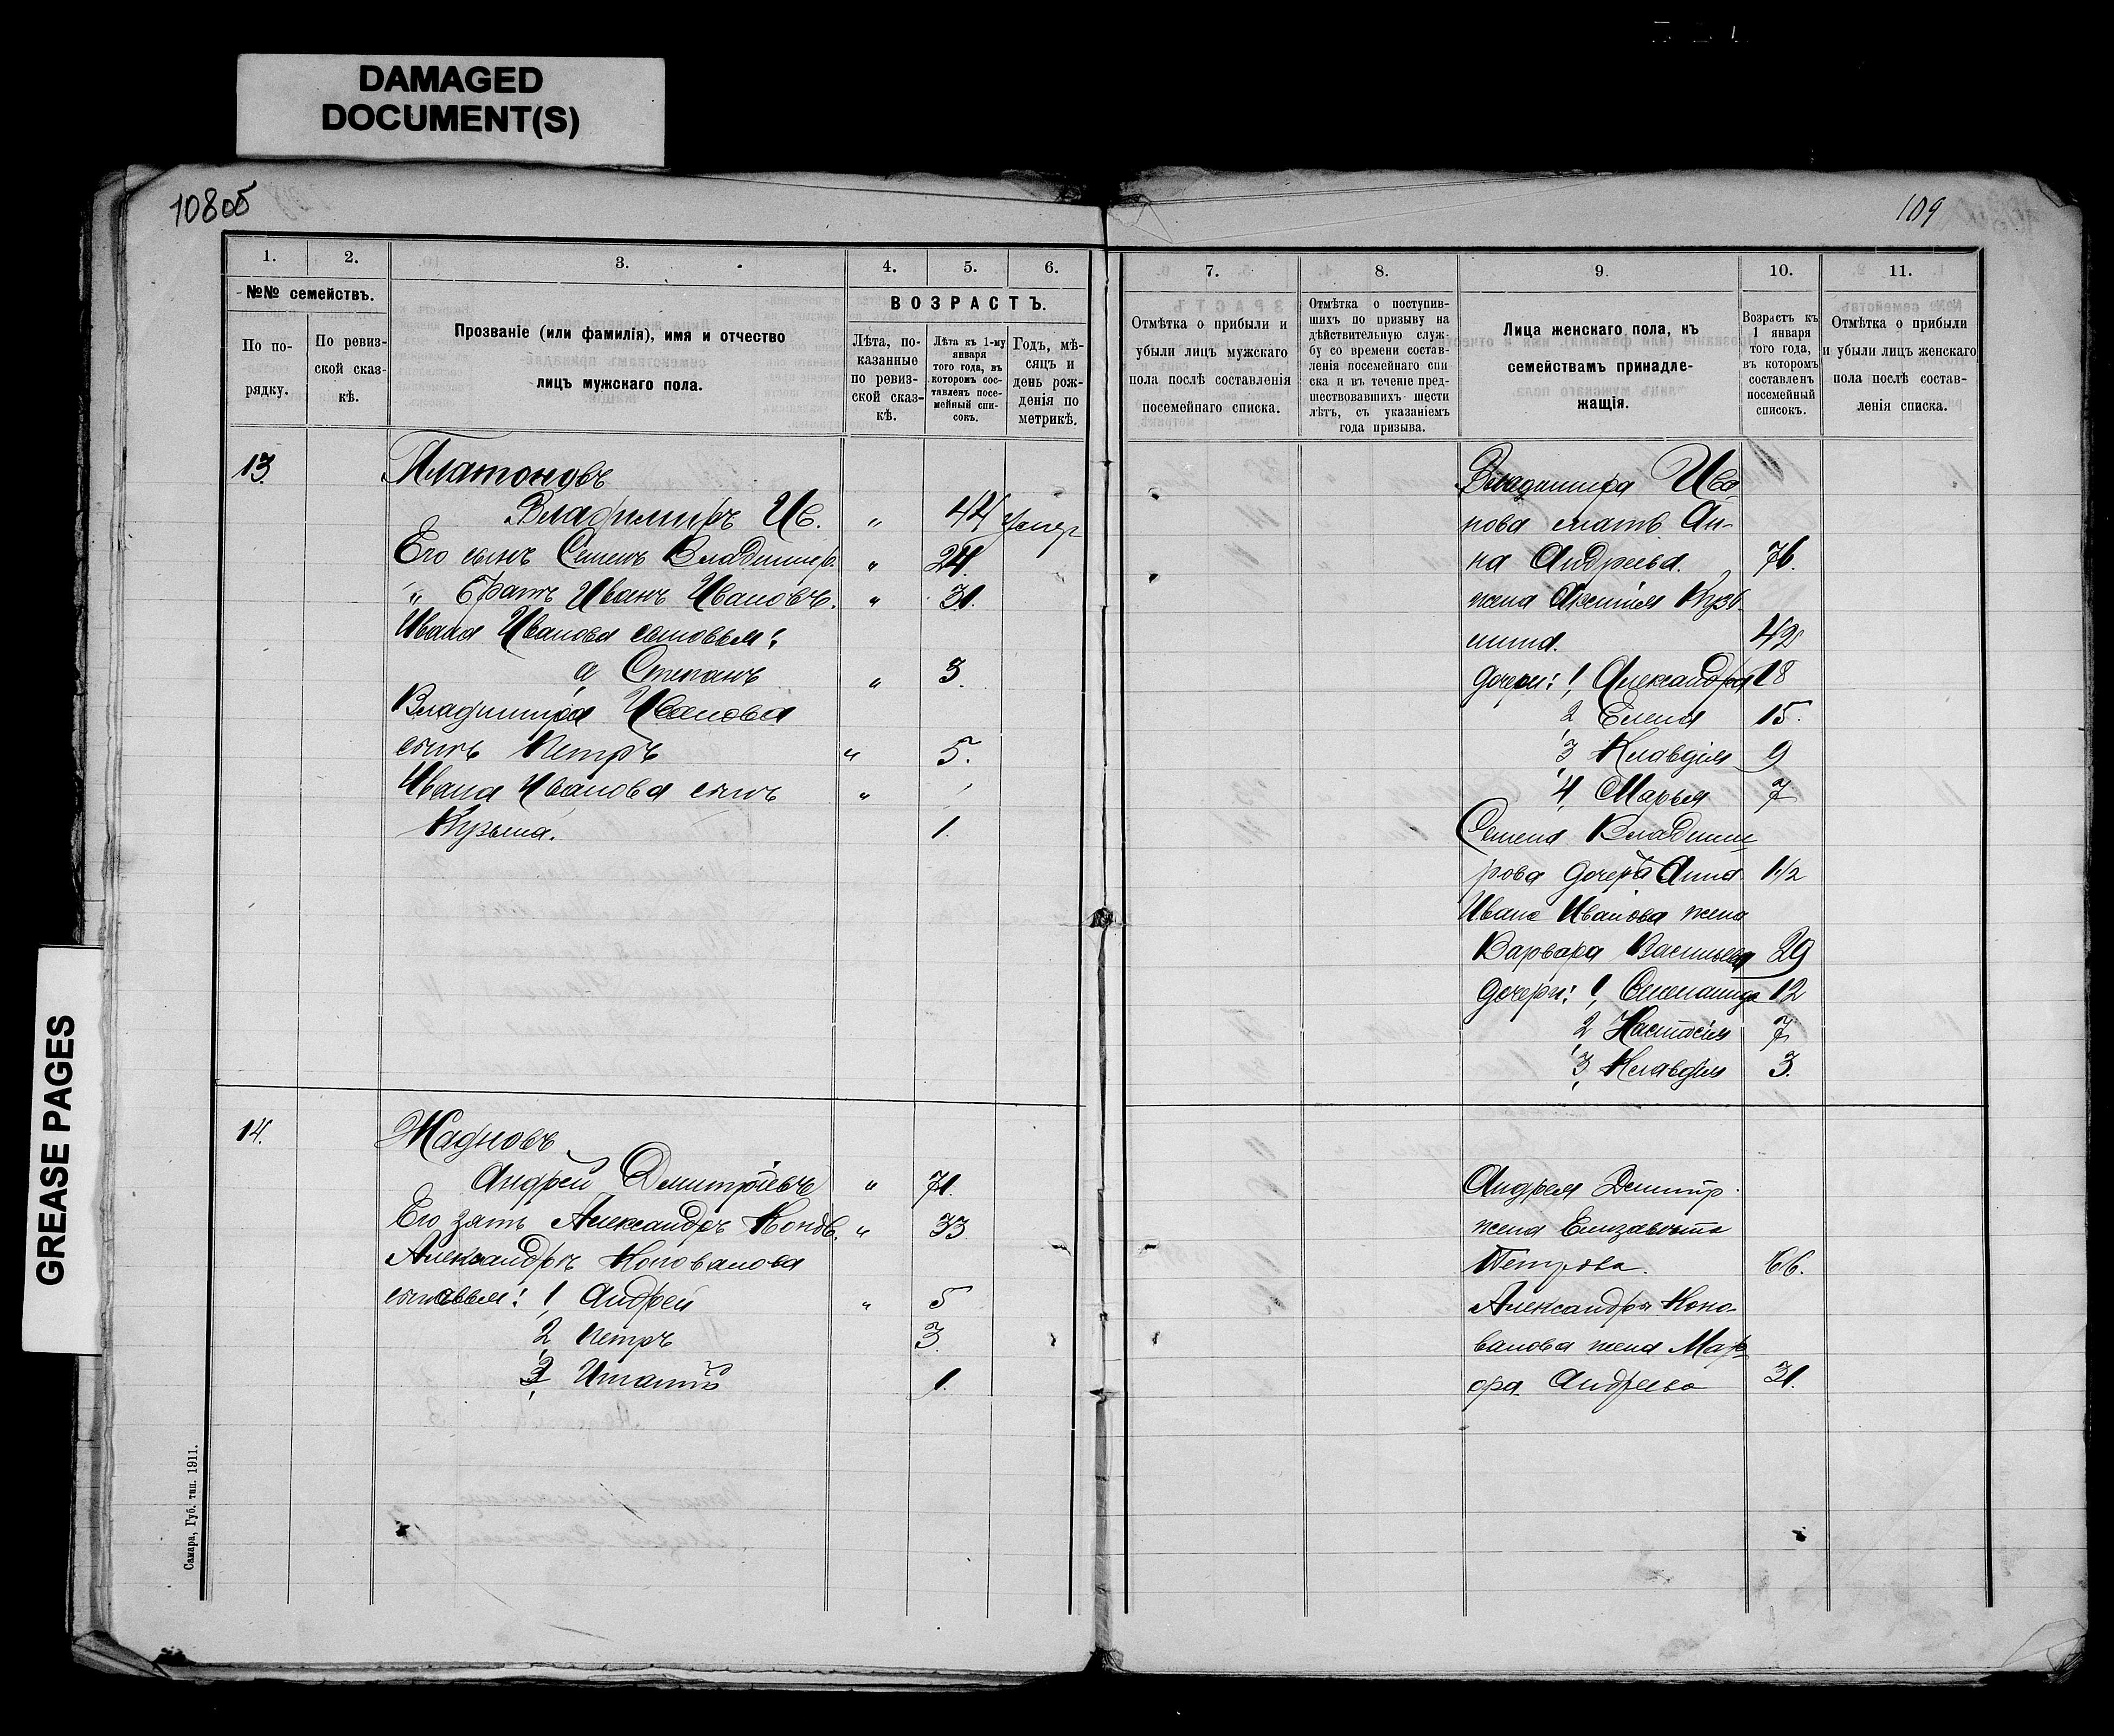 DAMAGED
DOCUMENT(S)
GREASE PAGES
108об
109
1.
2.
3.
4.
5.
6.
№№ семействъ.
По по-
рядку.
По ревиз-
ской сказ-
кѣ.
Прозваніе (или фамилія), имя и отчество
лицъ мужскаго пола.
ВОЗРАСТЪ.
Лѣта, по-
казанные
по ревиз-
ской сказ-
кѣ.
Лѣта къ 1-му
января
того года, въ
которомъ сос-
тавленъ посе-
мейный спи-
сокъ.
Годъ, мѣ-
сяцъ и
день рож-
денія по
метрикѣ.
13.
Платоновъ
Владимиръ Ив. „ 44 умер
Его сынъ Семенъ Владимир. „ 24.
„ братъ Иванъ Ивановъ. „ 31.
Ивана Иванова сыновья:
а Степанъ „ 3.
Владимира Иванова
сынъ Петръ „ 5.
Ивана Иванова сынъ „
Кузьма. 1.
14.
Андрей Дмитріевъ „ 71.
Его зять Александръ Конов. „ 33
Александръ Коновалова
сыновья: 1, Андрей „ 5
2, Петръ 3.
3, Игнатій 1.
Самара, Губ. тип. 1911.
7.
8.
9.
10.
11.
Отмѣтка о прибыли и
убыли лицъ мужскаго
пола послѣ составленія
посемейнаго списка.
Отмѣтка о поступив-
шихъ по призыву на
дѣйствительную служ-
бу со времени состав-
ленія посемейнаго спи
ска и въ теченіе пред-
шествовавшихъ шести
лѣтъ, съ указаніемъ
года призыва.
Лица женскаго пола, къ
семействамъ принадле-
жащія.
Возрастъ къ
1 января
того года,
въ которомъ
составленъ
посемейный
списокъ.
Отмѣтка о прибыли
и убыли лицъ женскаго
пола послѣ состав-
ленія списка.
Владимира Ива
нова мать Ан-
на Андреева. 76.
жена Аксинія Кузь-
мина. 42
дочери: 1, Александра 18
2, Елена 15.
3, Клавдія 9
4, Марья 7
Семена Владими
рова дочерь Анна 1/2
Ивана Иванова жена
Варвара Васильева 29
дочери: 1, 12
2, Настасія 7
3, Клавдія 3.
Андрея Дмитр.
жена Елизавета
Петрова. 66.
Александра Коно-
валова жена
Андреева 31.